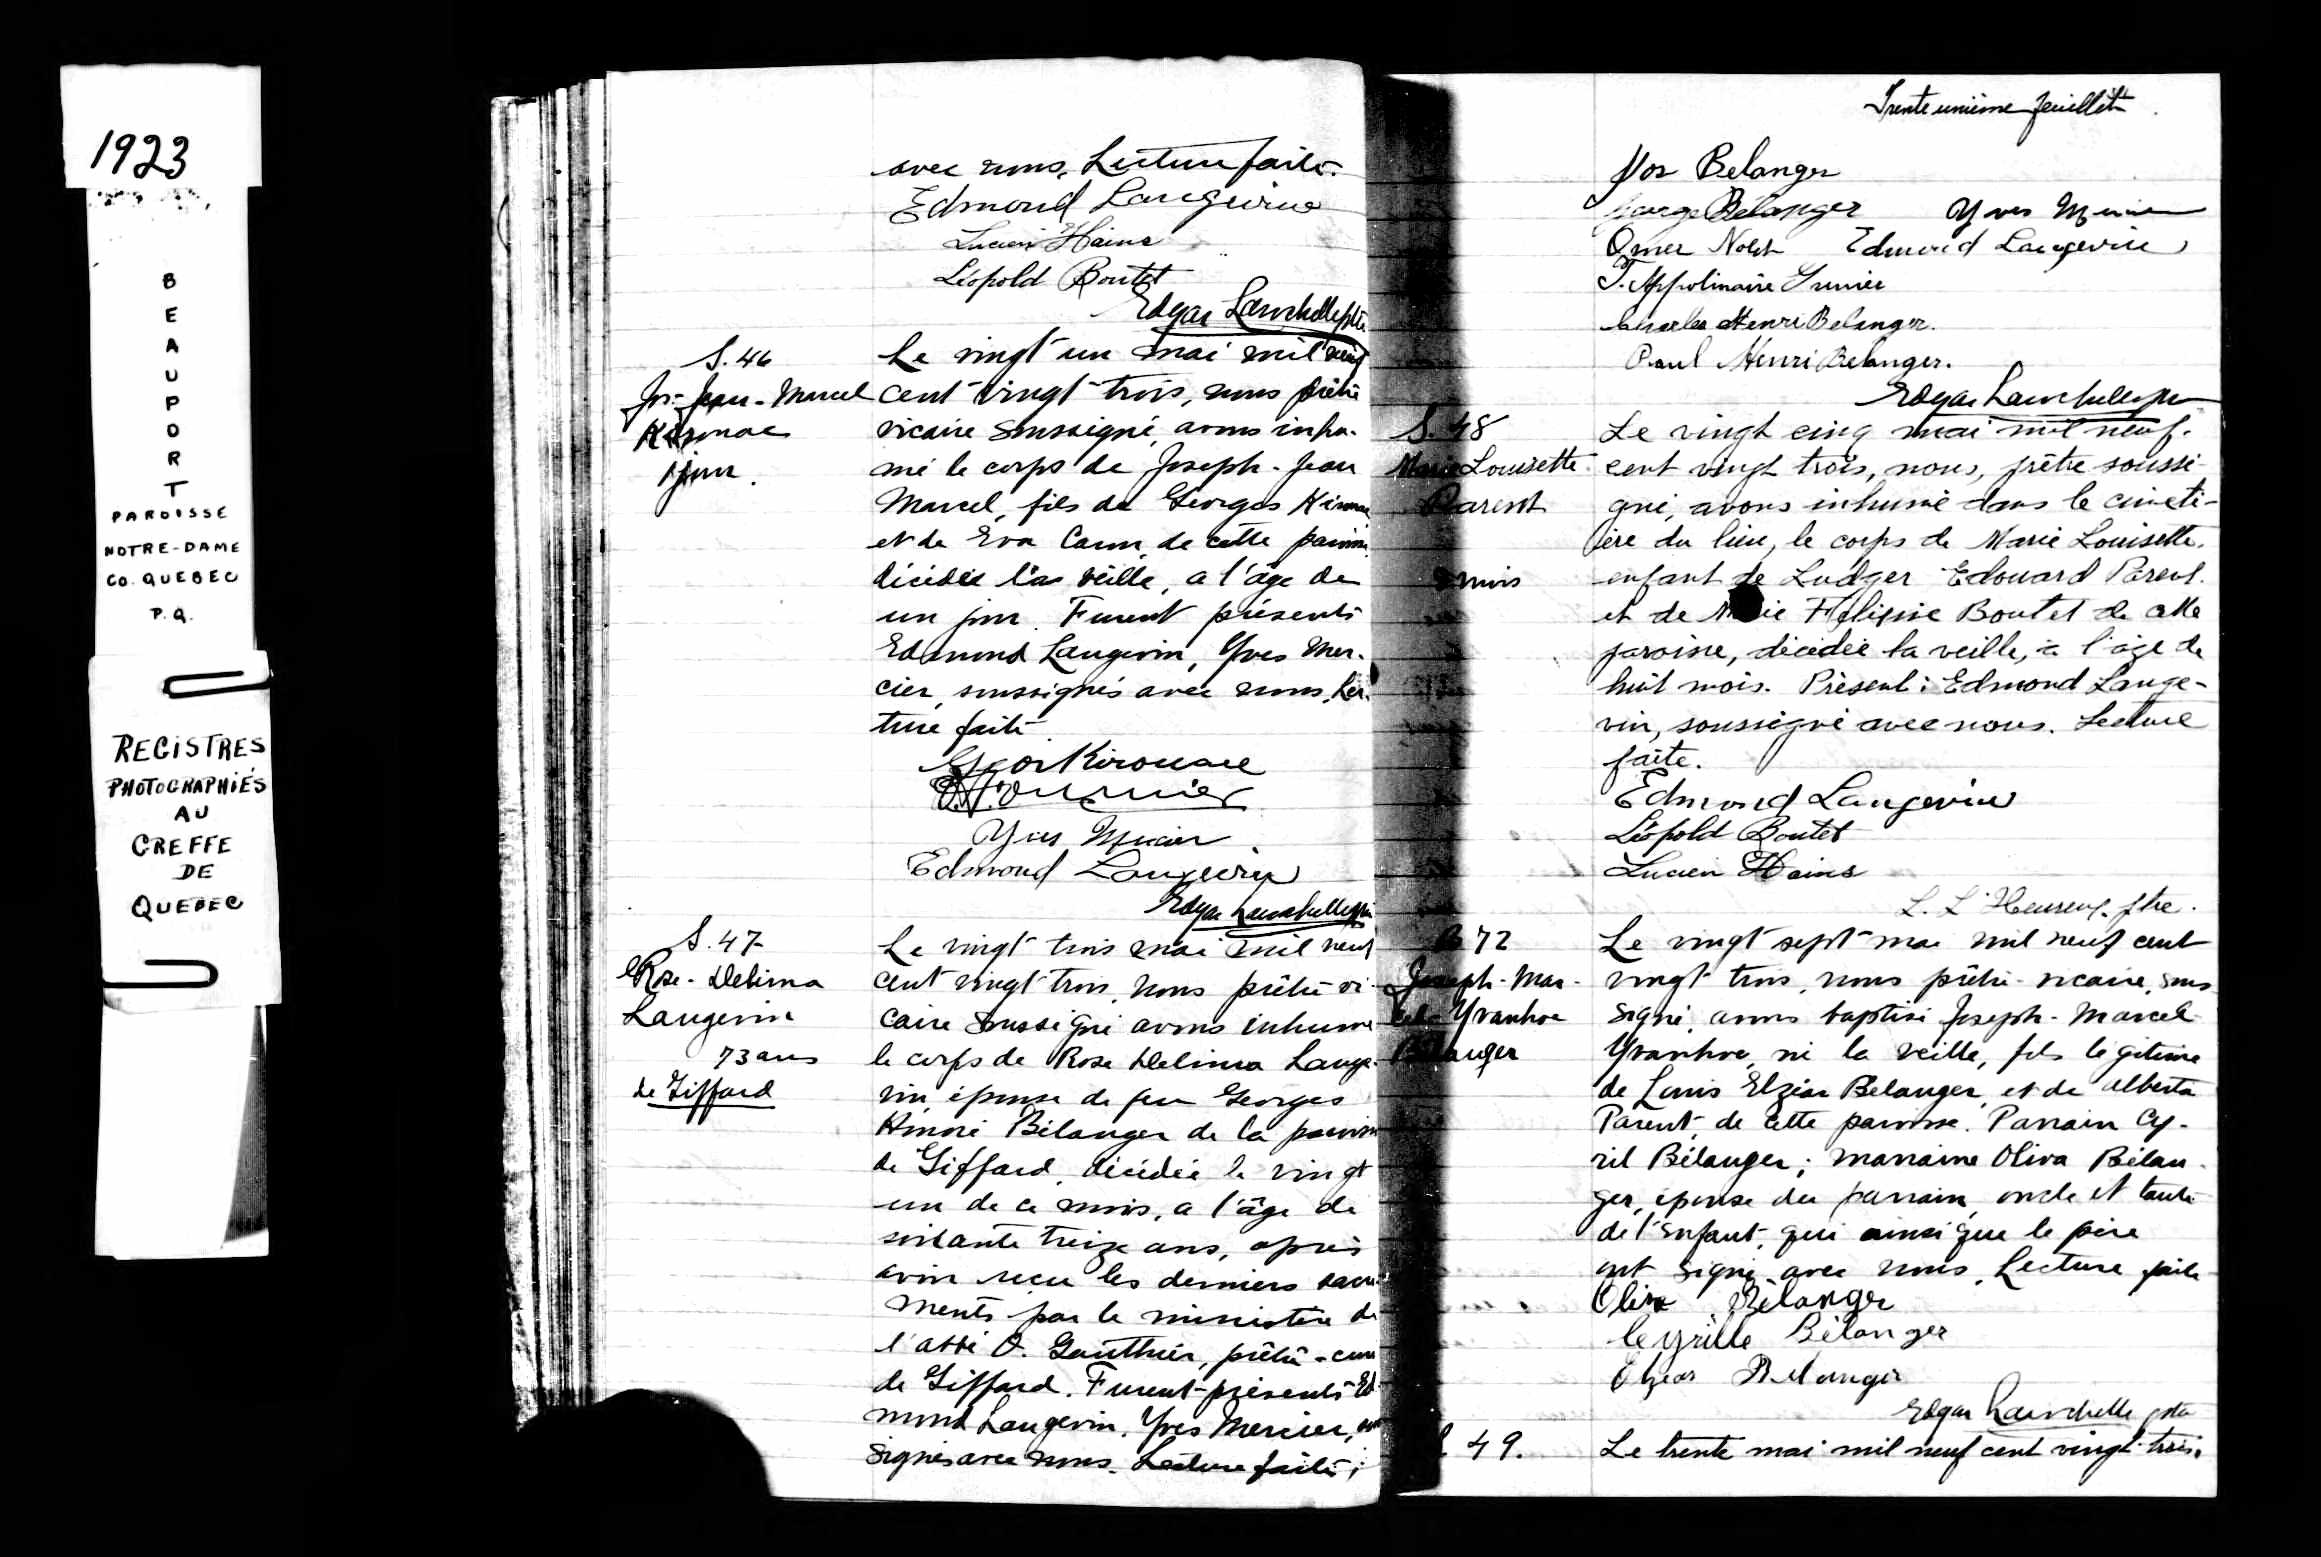 1923
BEAUPORT
PAROISSE
NOTRE-DAME
CO. QUEBEC
P.Q.
REGISTRES
PHOTOGRAPHIÉS
AU
GREFFE
DE
QUEBEC
avec nous. Lecture faite.
Edmond Langevin
Lucien Hains
Léopold Boutet
Edgar Larochelle ptre
S. 46
Jos-Jean-Marcel
Kirouac
1 jour.
Le vingt un mai mil neuf
cent vingt trois, nous prêtre
vicaire soussigné, avons inhu-
mé le corps de Joseph-Jean
Marcel, fils de Georges Kirouac
et de Eva Caron, de cette paroisse
décédé la veille, a l'âge de
un jour. Furent présents
Edmond Langevin, Yves Mer-
cier, soussignés avec nous. Lec-
ture faite
Geo Kirouac
Yves Mercier
Edmond Langevin
Edgar Larochelle ptre
S. 47
Rose-Delima
Langevin
73 ans
de Giffard
Le vingt trois mai mil neuf
cent vingt trois, nous prêtre vi-
caire soussigné avons inhumé
le corps de Rose Delima Lange-
vin, épouse de feu Georges
Honoré Bélanger de la paroisse
de Giffard, décédée le vingt
un de ce mois, a l'âge de
soixante treize ans, après
avoir reçu les derniers sacre-
ments par le ministère de
l'abbé O. Gauthier, prêtre-curé
de Giffard. Furent présents Ed-
mond Langevin, Yves Mercier,
signés avec nous. Lecture faite;
Trente unième feuillet
Jos Belanger
George Belanger Yves Mercier
Omer Nolet Edmond Langevin
T. Appolinaire Grenier
Charles Henri Belanger.
Paul Henri Belanger.
Edgar Larochelle ptre
S. 48
Marie Louisette
Parent
8 mois
Le vingt cinq mai mil neuf-
cent vingt trois, nous, prêtre soussi-
gné, avons inhumé dans le cimeti-
ère du lieu, le corps de Marie Louisette.
enfant de Ludger Edouard Parent.
et de Marie Boutet de cette
paroisse, décédée la veille, à l'âge de
huit mois. Présent: Edmond Lange-
vin, soussigné avec nous. Lecture
faite.
Edmond Langevin
Léopold Boutet
Lucien Hains
L. L'Heureux, ptre.
B 72
Joseph-Mar-
cel-Yvanhoe
Bélanger
Le vingt sept mai mil neuf cent
vingt trois, nous prêtre-vicaire, sous
signé, avons baptisé Joseph-Marcel
Yvanhoe, né la veille, fils légitime
de Louis Elzéar Belanger, et de Alberta
Parent, de cette paroisse. Parrain Cy-
ril Bélanger; marraine Oliva Bélan-
ger, épouse du parrain, oncle et tante
de l'enfant, qui ainsi que le père
ont signé avec nous. Lecture faite
Oliva Bélanger
Cyrille Bélanger
Elzear Belanger
Edgar Larochelle ptre
S. 49.
Le trente mai mil neuf cent vingt-trois,